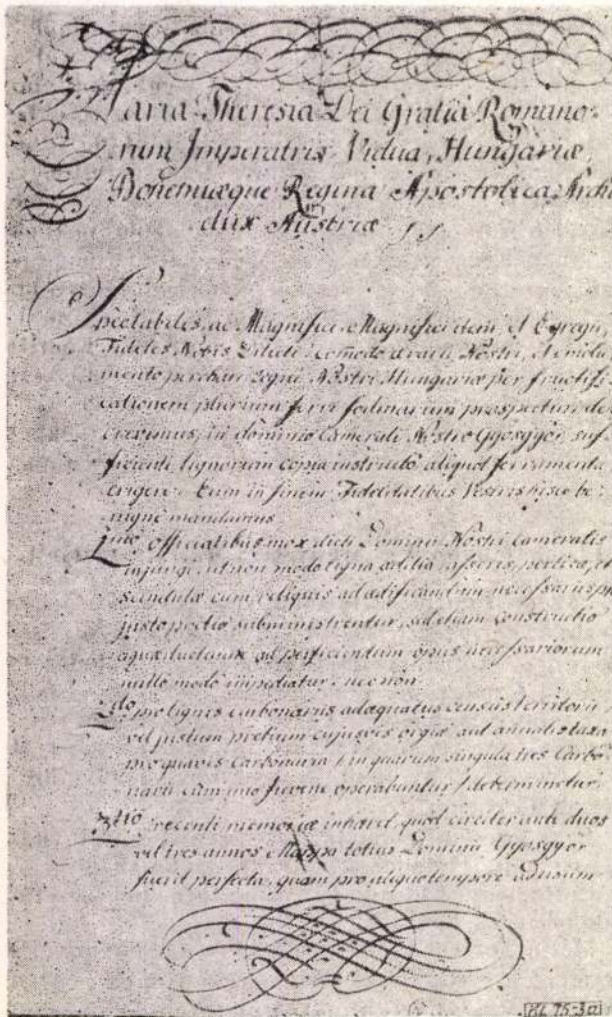 Maria Theresia Dei Gratiâ Romano-
rum Imperatrix Vidua, Hungariæ,
Bohemiæque Regina Apostolica, Archi
dux Austriæ
Spectabiles, ac Magnifici, Magnifici item, et Egregii,
Fideles Nobis Dilecti: comodo Nostri, et emolu
mento Regni Nostri Hungariæ per fructifi
cationem plurium ferri fodinarum prospectum de
crevimus, in dominio Camerali Nostro Gyösgyör suf
ficienti lignorum copia instructo aliquot ferramenta
erigere. Eum in finem Fidelitatibus Vestris hisce be
nigne mandamus
1mo Officialibus mox dicti Dominii Nostri Cameralis
injungi, ut non modo ligna ædilia, asseres, perticæ, et
scandulæ cum reliquis ad ædificandum necessariis
justo pretio subministrentur, sed etiam constructio
aquæductuum ad perficiendum opus necessariorum
nullo modo impediatur, necnon
2do pro lignis carbonariis adæquatus census territorii
vel justum pretium cujusvis orgiæ aut annalis taxa
pro quavis Carbonaria / in quarum singula tres Carbo
narii operabuntur / determinetur
3tio recenti memoriæ inhæret, quod circiter ante duos
vel tres annos Mappa totius Dominii Gyösgyör
fuerit perfecta, quam pro aliquo tempore ad usum
BL 75-3a